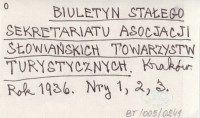 0
BIULETYN STAŁEGO
SEKRETARIATU ASOCJACJI
SŁOWIAŃSKICH TOWARZYSTW
TURYSTYCZNYCH. Kraków.
Rok 1936. Nry 1, 2, 3.
BT/005/0849